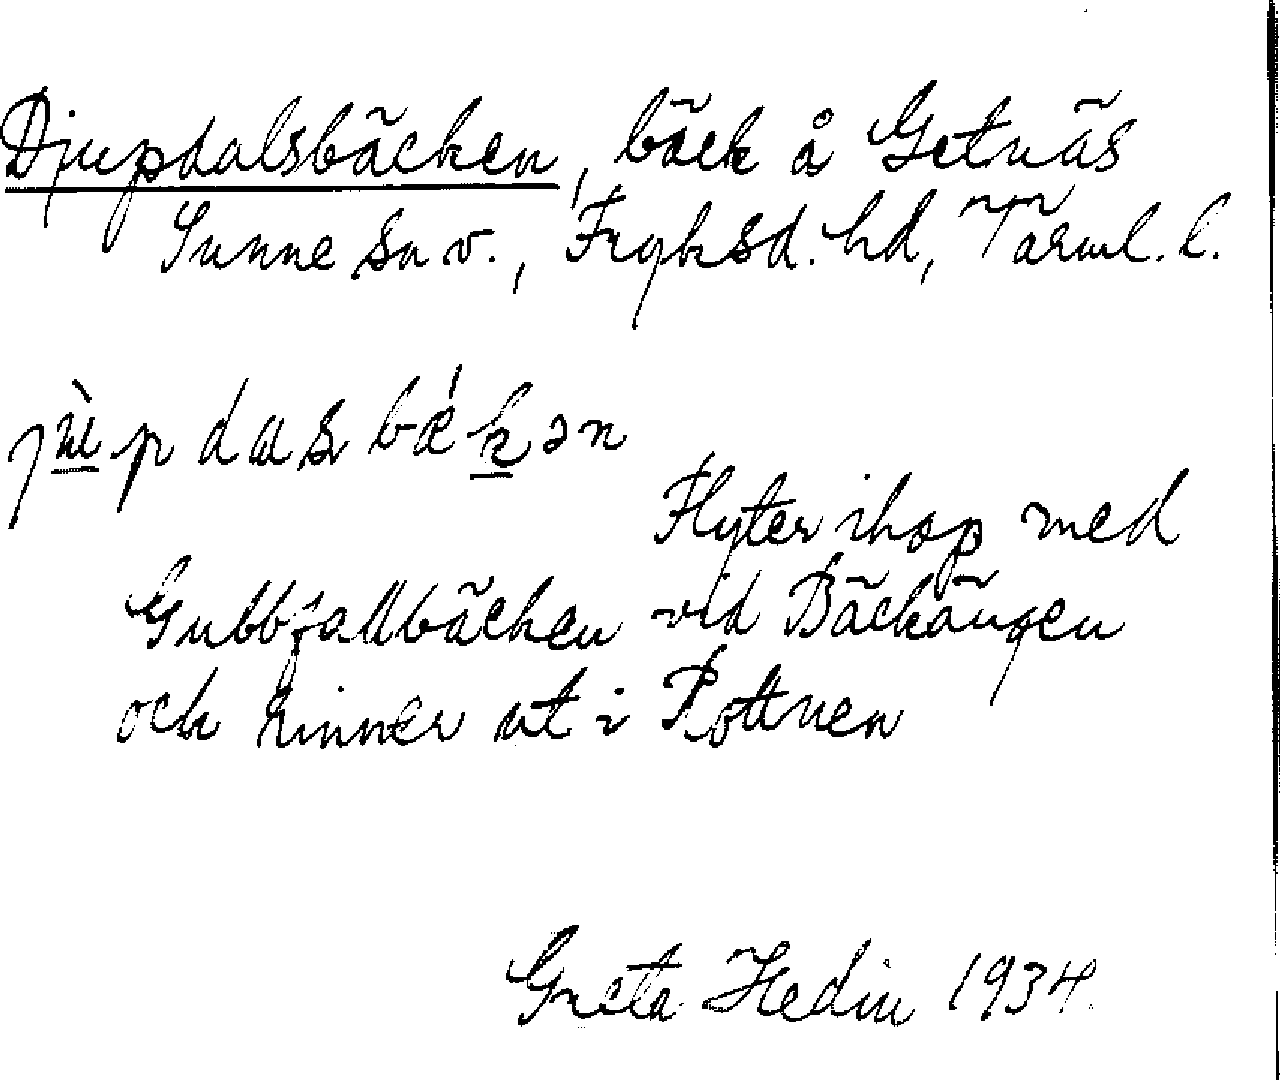 Djupdalsbäcken, bäck å Getnäs
Sunne sn v., Fryksd. hd, Värml. l.
jùpdasbǽkən
Flyter ihop med
Gubbfallbäcken vid Bäckängen
och rinner ut i Rottnen
Greta Hedin 1934.